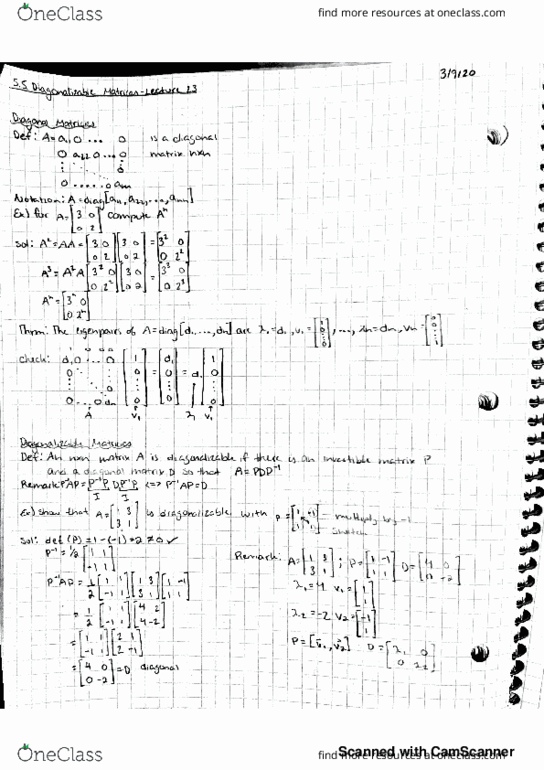 OneClass
find more resources at oneclass.com
3/9/20
5.5 Diagonalizable Matrices - Lecture 23
Diagonal Matrices
Def: A = a₁₁ 0 ... 0 is a diagonal
0 a₂₂ 0 ... 0 matrix nxn
0 ..... 0 ann
Notation: A = diag[a₁₁, a₂₂, ..., ann]
Ex) for A = [3 0; 0 2] compute Aⁿ
Sol: A² = AA = [3 0; 0 2][3 0; 0 2] = [3² 0; 0 2²]
A³ = A²A [3² 0; 0 2²][3 0; 0 2] = [3³ 0; 0 2³]
Aⁿ = [3ⁿ 0; 0 2ⁿ]
Thrm: The eigenpairs of A = diag[d₁, ..., dn] are λ₁ = d₁, v₁ = [1; 0; ⋮; 0], ..., λn = dn, vn = [0; 0; ⋮; 1]
check: [d₁ 0 ... 0; 0 ⋮; 0 ... 0 dn] [1; 0; ⋮; 0] = [d₁; 0; ⋮; 0] = d₁ [1; 0; ⋮; 0]
A v₁ λ₁ v₁
Diagonalizable Matrices
Def: An nxn matrix A is diagonalizable if there is an invertible matrix P
and a diagonal matrix D so that A = PDP⁻¹
Remark: P⁻¹AP = P⁻¹P D P⁻¹P <=> P⁻¹AP = D
I I
Ex) show that A = [1 3; 3 1] is diagonalizable with P = [1 -1; 1 1] - multiply by -1
Sol: det(P) = 1 - (-1) = 2 ≠ 0 ✓
P⁻¹ = 1/2 [1 1; -1 1]
P⁻¹AP = 1/2 [1 1; -1 1][1 3; 3 1][1 -1; 1 1]
= 1/2 [1 1; -1 1][4 2; 4 -2]
= [1 1; -1 1][2 1; 2 -1]
= [4 0; 0 -2] = D diagonal
Remark: A = [1 3; 3 1]; P = [1 -1; 1 1] D = [4 0; 0 -2]
λ₁ = 4 v₁ = [1; 1]
λ₂ = -2 v₂ = [-1; 1]
P = [v₁, v₂] D = [λ₁ 0; 0 λ₂]
Scanned with CamScanner
OneClass
find more resources at oneclass.com